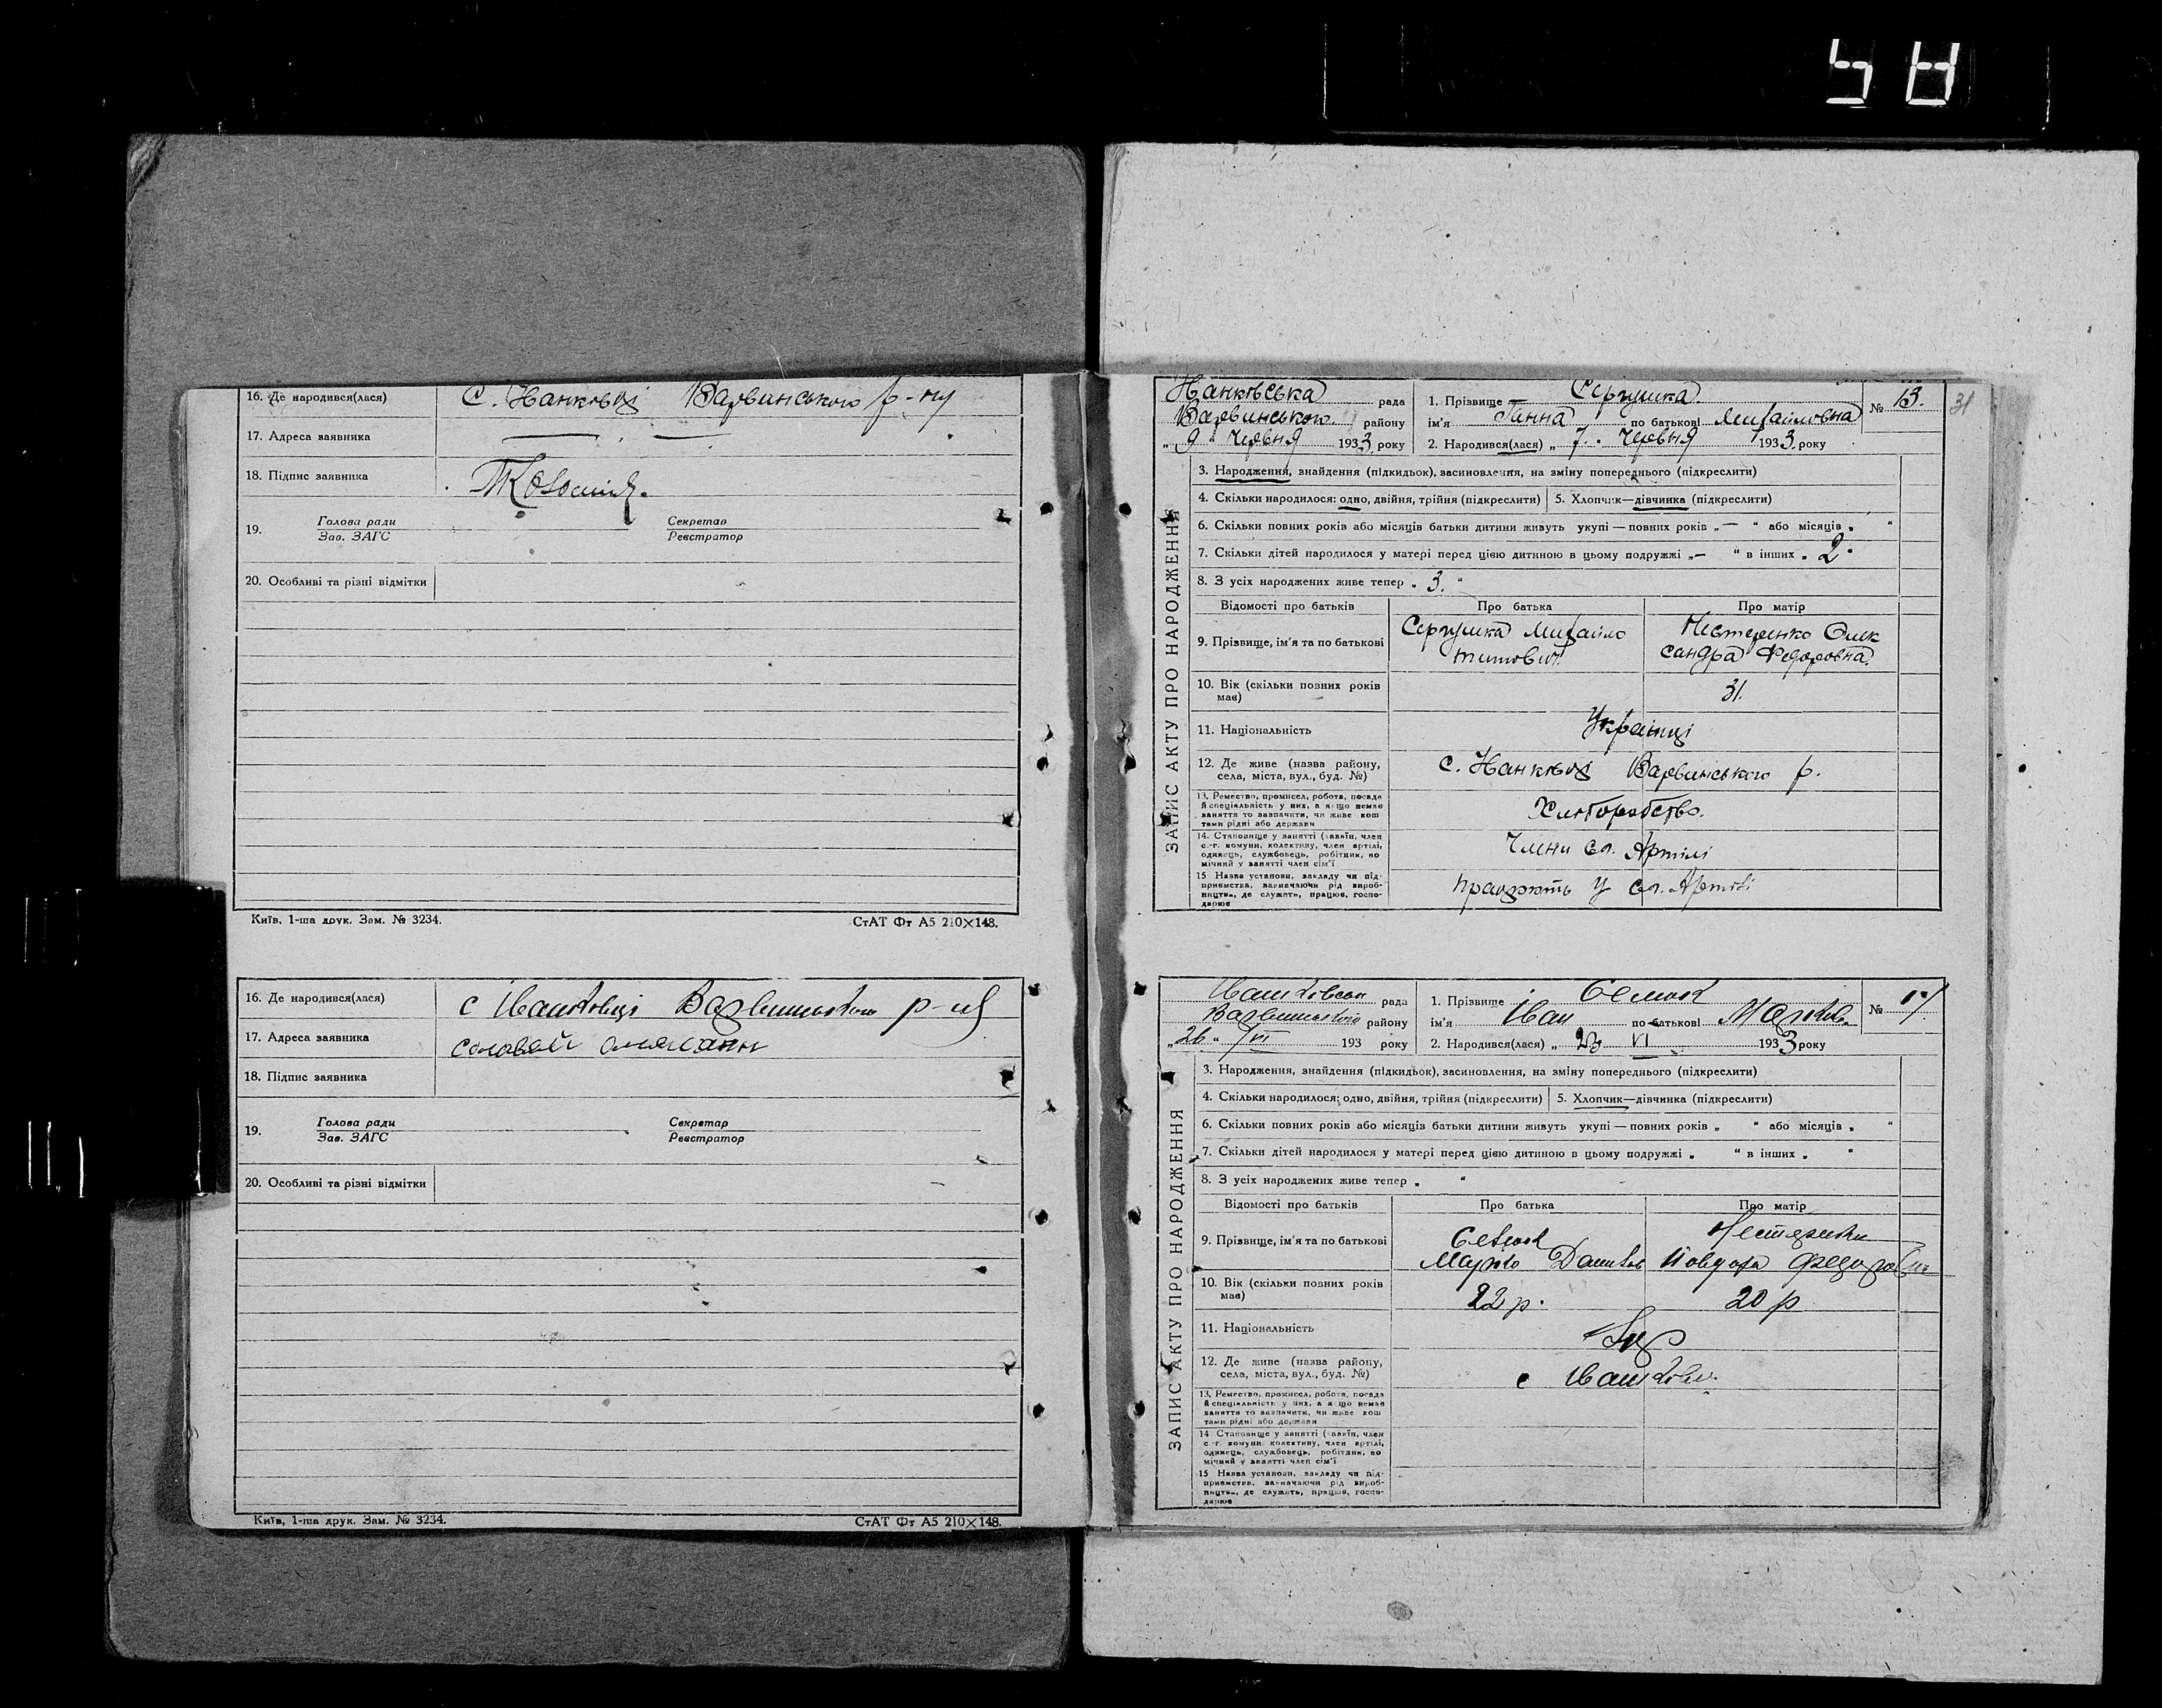 58
16. Де народився(лася) с. Варвинського р-ну
17. Адреса заявника
18. Підпис заявника
19. Голова ради Секретар
Зав. ЗАГС Реєстратор
20. Особливі та різні відмітки
Київ, 1-ша друк. Зам. № 3234. СтАТ Фт А5 210×148.
16. Де народився(лася) с Івашківці Варвинського р-ну
17. Адреса заявника
18. Підпис заявника
19. Голова ради Секретар
Зав. ЗАГС Реєстратор
20. Особливі та різні відмітки
Київ, 1-ша друк. Зам. № 3234. СтАТ Фт А5 210×148.
31
рада 1. Прізвище Сергушка № 13.
Варвинського району ім'я Ганна по батькові Михайловна
„9“ Червня 1933 року 2. Народився(лася) „7“ Червня 1933 року
ЗАПИС АКТУ ПРО НАРОДЖЕННЯ
3. Народження, знайдення (підкидьок), засиновлення, на зміну попереднього (підкреслити)
4. Скільки народилося: одно, двійня, трійня (підкреслити) 5. Хлопчик—дівчинка (підкреслити)
6. Скільки повних років або місяців батьки дитини живуть укупі — повних років „—“ або місяців „ “
7. Скільки дітей народилося у матері перед цією дитиною в цьому подружжі „—“ в інших „2“
8. З усіх народжених живе тепер „3.“
Відомості про батьків Про батька Про матір
9. Прізвище, ім'я та по батькові Сергушка Михайло Нестеренко Олек
Титович сандра Федоровна
10. Вік (скільки повних років 31.
має)
11. Національність Українці
12. Де живе (назва району, с. Варвинського р.
села, міста, вул., буд. №)
13. Ремество, промисел, робота, посада Хліборобство.
й спеціяльність у них, а якщо немає
заняття то зазначити, чи живе кош
тами рідні або держави
14. Становище у занятті (хазяїн, член Члени Артілі
с.-г. комуни, колективу, член артілі,
одинець, службовець, робітник, по
мічний у занятті член сім'ї
15 Назва установи, закладу чи під- працюють у Артілі
приємства, зазначаючи рід вироб-
ництва, де служить, працює, госпо-
дарює
рада 1. Прізвище №
Варвинського району ім'я Іван по батькові Марков.
„26“ VI 193 року 2. Народився(лася) „23 VI 1933 року
ЗАПИС АКТУ ПРО НАРОДЖЕННЯ
3. Народження, знайдення (підкидьок), засиновлення, на зміну попереднього (підкреслити)
4. Скільки народилося: одно, двійня, трійня (підкреслити) 5. Хлопчик—дівчинка (підкреслити)
6. Скільки повних років або місяців батьки дитини живуть укупі — повних років „ “ або місяців „ “
7. Скільки дітей народилося у матері перед цією дитиною в цьому подружжі „ “ в інших „ “
8. З усіх народжених живе тепер „ “
Відомості про батьків Про батька Про матір
9. Прізвище, ім'я та по батькові
Марко
10. Вік (скільки повних років 22 р. 20 р
має)
11. Національність Укр
12. Де живе (назва району, с
села, міста, вул., буд. №)
13. Ремество, промисел, робота, посада
й спеціяльність у них, а якщо немає
заняття то зазначити, чи живе кош
тами рідні або держави
14 Становище у занятті (хазяїн, член
с-г. комуни, колективу, член артілі,
одинець, службовець, робітник, по
мічний у занятті член сім'ї
15 Назва установи, закладу чи під-
приємства, зазначаючи рід вироб-
ництва, де служить, працює, госпо-
дарює